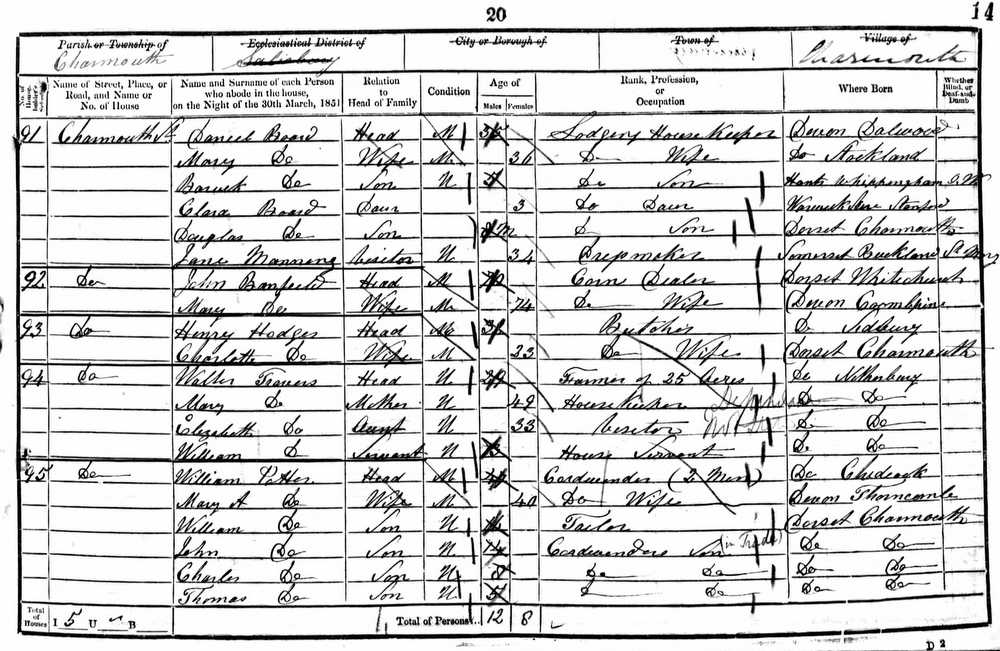 20
14
Parish or Township of
Charmouth
Ecclesiastical District of
City or Borough of
Town of
Village of
Charmouth
No. of House-holder's Schedule
Name of Street, Place, or Road, and Name or No. of House
Name and Surname of each Person who abode in the house, on the Night of the 30th March, 1851
Relation to Head of Family
Condition
Age of
Males
Females
Rank, Profession, or Occupation
Where Born
Whether Blind, or Deaf-and-Dumb
91 Charmouth St Daniel Board Head M Lodging House Keeper Devon Dalwood
Mary Do Wife M 36 Do Wife Do Stockland
Do Son U Do Son Hants Whippingham
Clara Board Daur 3 Do Daur Warwickshire
Douglas Do Son Do Son Dorset Charmouth
Jane Manning Visitor U 34 Dressmaker Somerset Buckland St Mary
92 Do John Banfield Head M Corn Dealer Dorset Whitchurch
Mary Do Wife M 74 Do Wife Devon
93 Do Henry Hodges Head M 31 Butcher Do Sidbury
Charlotte Do Wife M 23 Do Wife Dorset Charmouth
94 Do Walter Travers Head U Farmer of 25 Acres Do Netherbury
Mary Do Mother U 49 Housekeeper Do Do
Elizabeth Do Aunt U 33 Visitor Do Do
William D Servant U House Servant Do Do
95 Do William Potter Head M Cordwainder (2 Men) Do Chideock
Mary A Do Wife M 40 Do Wife Devon Thorncombe
William Do Son U Tailor Dorset Charmouth
John Do Son U 14 Cordwainders Son (in Trade) Do Do
Charles Do Son U Do Do Do Do
Thomas Do Son U Do Do Do
Total of Houses
I 5 U B
Total of Persons... 12 8
D 2